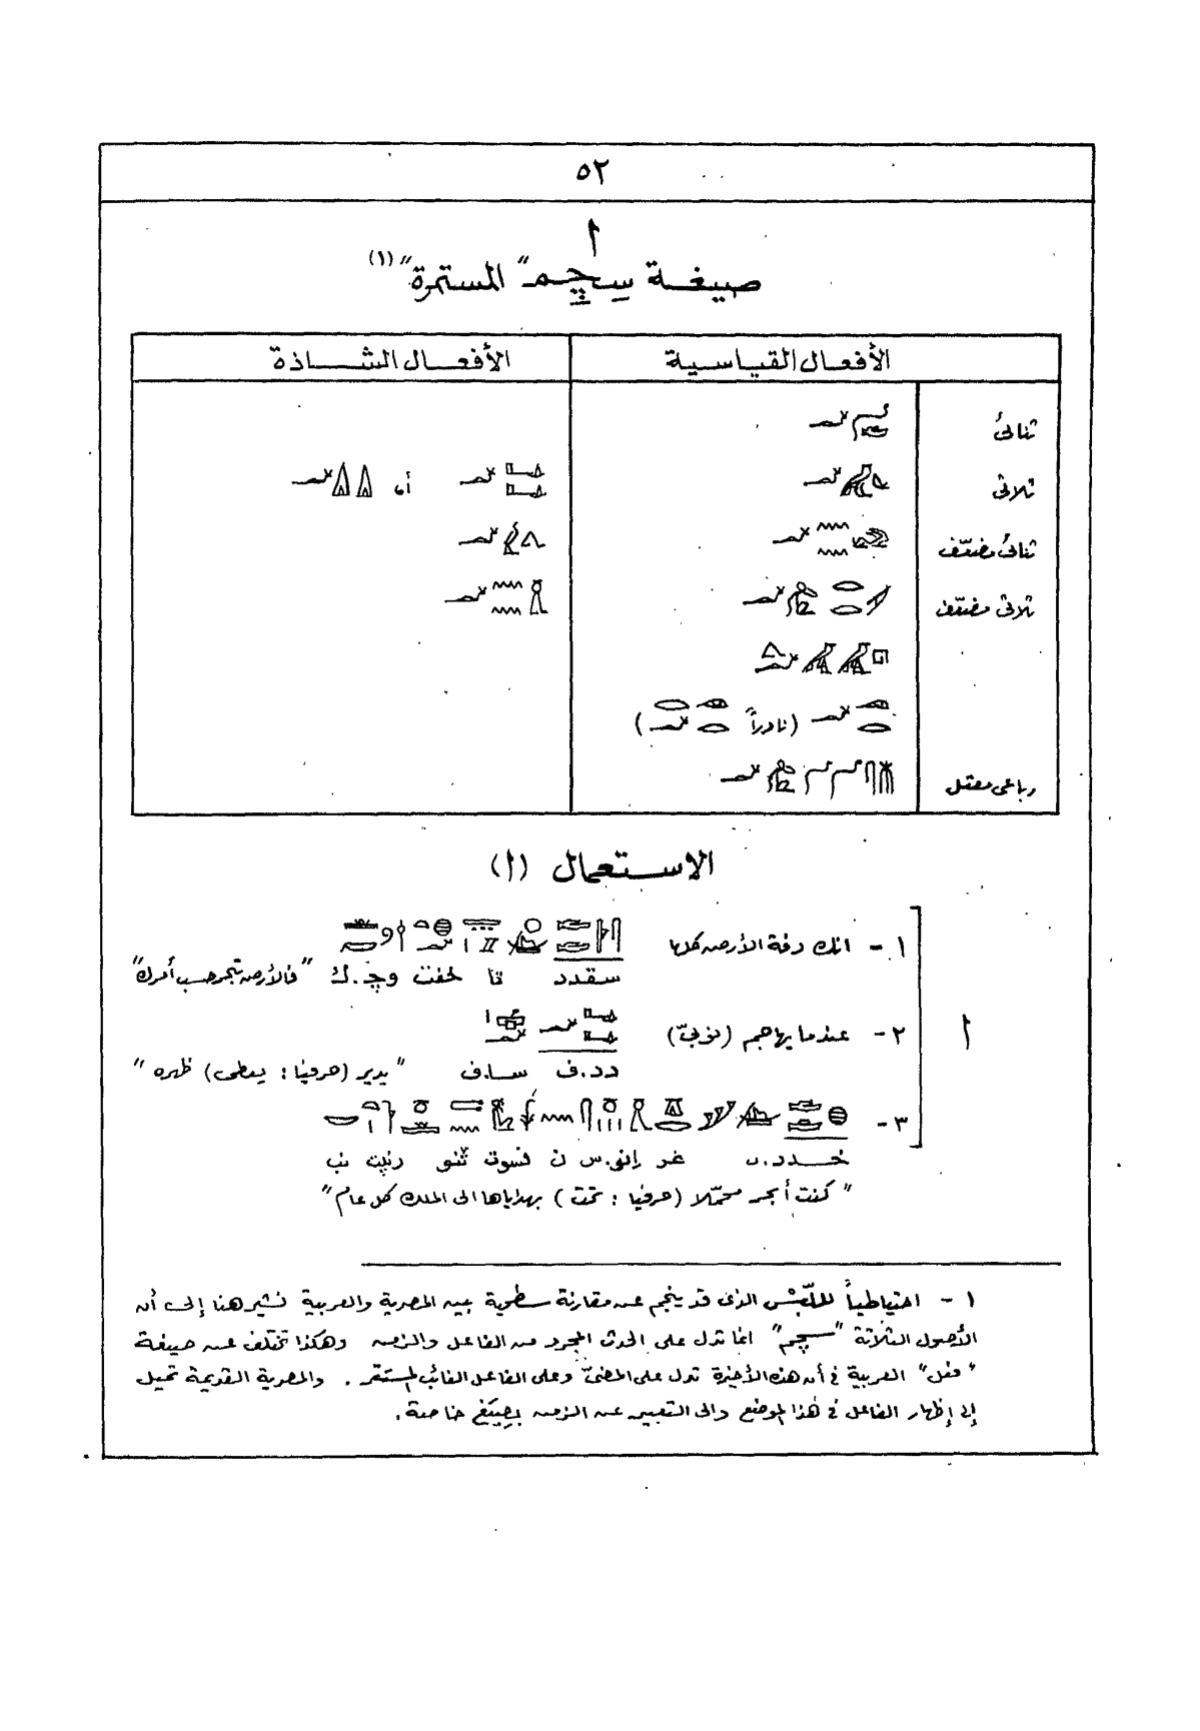 ٥٢
١
صيغة سچم "المستمرة" (١)
الأفعال القياسية الأفعال الشاذة
ثنائى
ثلاثى أو
ثنائى مضعّف
ثلاثى مضعّف
(نادراً )
رباعى معتل
الاستعمال (١)
١ - انك دفة الأرض كلها
سقدد تا خفت وچ.ك "فالأرض تبحر حسب أمرك"
١
٢ - عندما يهاجم (نوبىّ)
دد.ف سا.ف "يدير (حرفيا: يعطى) ظهره"
٣ -
خدد. غر إنو.س ن نسوت ثنو رنپت نب
"كنت أبحر محمّلا (حرفيا: تحت) بهداياها الى الملك كل عام"
١ - احتياطياً للّبْس الذى قد ينجم عن مقارنة سطحية بين المصرية والعربية نشير هنا إلى أن
الأصول الثلاثة "سچم" انما تدل على الحدث المجرد من الفاعل والزمن وهكذا تختلف عن صيغة
"فعل" العربية فى أن هذه الأخيرة تدل على المضىّ وعلى الفاعل الغائب المستتر. والمصرية القديمة تميل
إلى إظهار الفاعل فى هذا الموضع والى التعبير عن الزمن بصِيَغ خاصة.